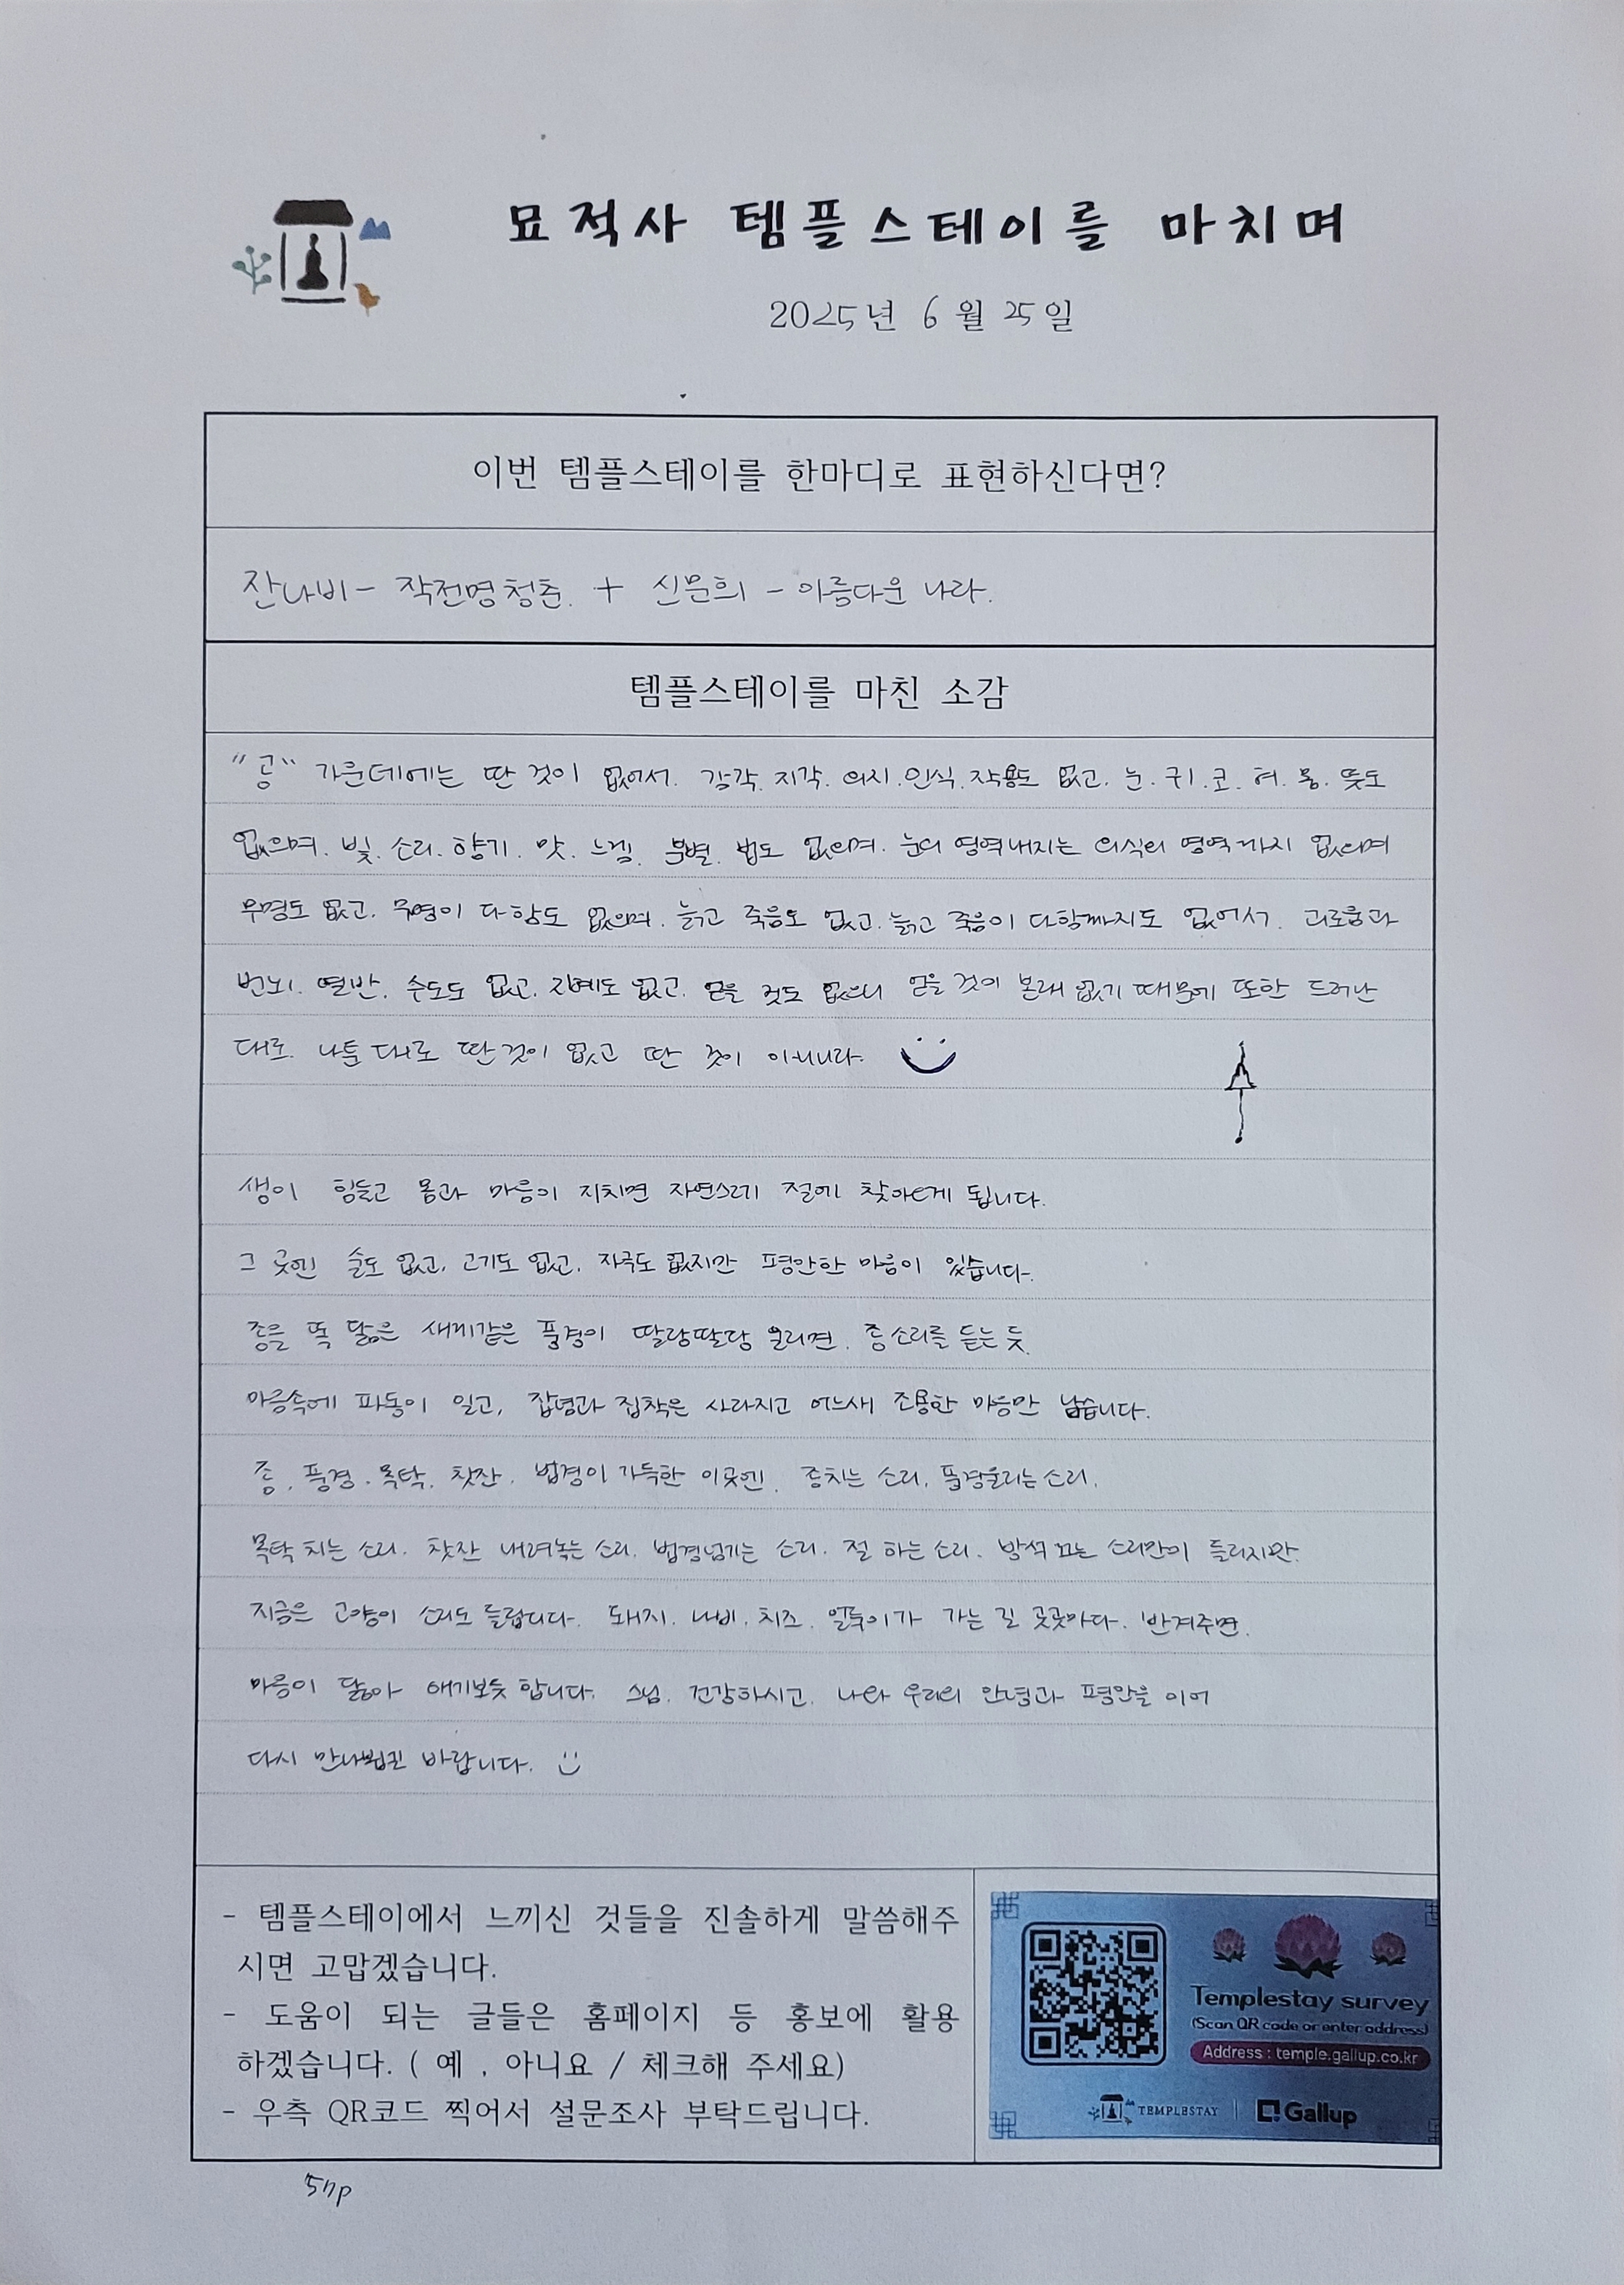 묘적사 템플스테이를 마치며
2025년 6월 25일
이번 템플스테이를 한마디로 표현하신다면?
잔나비 - 작전명 청춘. + 신문희 - 아름다운 나라.
템플스테이를 마친 소감
"공" 가운데에는 딴 것이 없어서. 감각. 지각. 의지. 인식. 작용도 없고. 눈. 귀. 코. 혀. 몸. 뜻도
없으며. 빛. 소리. 향기. 맛. 느낌. 분별. 법도 없으며. 눈의 영역 내지는 의식의 영역까지 없으며
무명도 없고. 무명이 다함도 없으며. 늙고 죽음도 없고. 늙고 죽음이 다함까지도 없어서. 괴로움과
번뇌. 열반. 수도도 없고. 지혜도 없고. 얻을 것도 없으니 얻을 것이 본래 없기 때문에 또한 드러난
대로. 나툰 대로 딴 것이 없고 딴 것이 아니니라.
생이 힘들고 몸과 마음이 지치면 자연스레 절에 찾아오게 됩니다.
그 곳엔 술도 없고, 고기도 없고, 자극도 없지만 평안한 마음이 있습니다.
종을 똑 닮은 새끼같은 풍경이 딸랑딸랑 울리면. 종소리를 듣는 듯
마음속에 파동이 일고, 잡념과 집착은 사라지고 어느새 조용한 마음만 남습니다.
종. 풍경. 목탁. 찻잔. 법경이 가득한 이곳엔. 종치는 소리. 풍경울리는 소리.
목탁 치는 소리. 찻잔 내려놓는 소리. 법경넘기는 소리. 절 하는 소리. 방석 끄는 소리만이 들리지만.
지금은 고양이 소리도 들립니다. 돼지. 나비. 치즈. 얼룩이가 가는 길 곳곳마다. 반겨주면.
마음이 닳아 애기보듯 합니다. 스님. 건강하시고. 나와 우리의 안녕과 평안을 이어
다시 만나뵙길 바랍니다.
- 템플스테이에서 느끼신 것들을 진솔하게 말씀해주
시면 고맙겠습니다.
- 도움이 되는 글들은 홈페이지 등 홍보에 활용
하겠습니다. ( 예 , 아니요 / 체크해 주세요)
- 우측 QR코드 찍어서 설문조사 부탁드립니다.
Templestay survey
(Scan QR code or enter address)
Address : temple.gallup.co.kr
TEMPLESTAY
Gallup